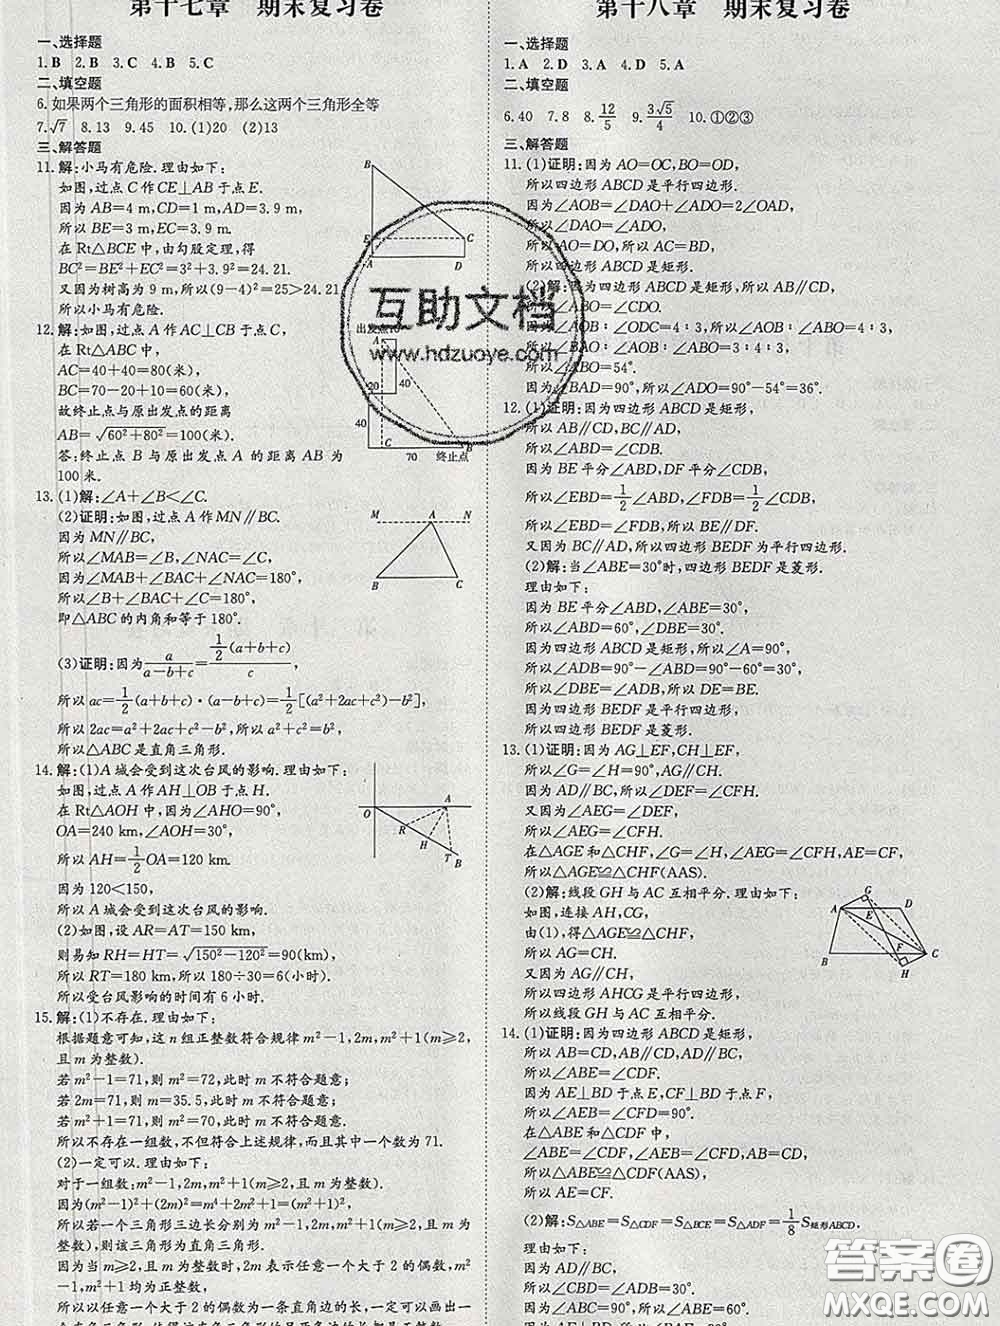 第十七章 期末复习卷
一、选择题
1.B 2.B 3.C 4.B 5.C
二、填空题
6.如果两个三角形的面积相等,那么这两个三角形全等
7.√7 8.13 9.45 10.(1)20 (2)13
三、解答题
11.解:小马有危险.理由如下:
如图,过点C作CE⊥AB于点E.
因为AB=4 m,CD=1 m,AD=3.9 m,
所以BE=3 m,EC=3.9 m.
在Rt△BCE中,由勾股定理,得
BC²=BE²+EC²=3²+3.9²=24.21.
又因为树高为9 m,所以(9-4)²=25>24.21.
所以小马有危险.
B
E
C
A
D
12.解:如图,过点A作AC⊥CB于点C,
在Rt△ABC中,
AC=40+40=80(米),
BC=70-20+10=60(米),
故终止点与原出发点的距离
AB=√60²+80²=100(米).
答:终止点B与原出发点A的距离AB为
100米.
出发点10
A
20
40
40
C
B
70 终止点
13.(1)解:∠A+∠B<∠C.
(2)证明:如图,过点A作MN∥BC.
因为MN∥BC,
所以∠MAB=∠B,∠NAC=∠C,
因为∠MAB+∠BAC+∠NAC=180°,
所以∠B+∠BAC+∠C=180°,
即△ABC的内角和等于180°.
M A N
B C
(3)证明:因为a/(a-b+c)=½(a+b+c)/c,
所以ac=½(a+b+c)·(a-b+c)=½[a²+2ac+c²)-b²],
所以2ac=a²+2ac+c²-b²,所以a²+c²=b²,
所以△ABC是直角三角形.
14.解:(1)A城会受到这次台风的影响.理由如下:
如图,过点A作AH⊥OB于点H.
在Rt△AOH中,因为∠AHO=90°,
OA=240 km,∠AOH=30°,
所以AH=½OA=120 km.
因为120<150,
所以A城会受到这次台风的影响.
(2)如图,设AR=AT=150 km,
则易知RH=HT=√150²-120²=90(km),
所以RT=180 km,所以180÷30=6(小时).
所以受台风影响的时间有6小时.
O
A
R
H
T
B
15.解:(1)不存在.理由如下:
根据题意可知,这n组正整数符合规律m²-1,2m,m²+1(m≥2,
且m为整数).
若m²-1=71,则m²=72,此时m不符合题意;
若2m=71,则m=35.5,此时m不符合题意;
若m²+1=71,则m²=70,此时m不符合题意,
所以不存在一组数,不但符合上述规律,而且其中一个数为71.
(2)一定可以.理由如下:
对于一组数:m²-1,2m,m²+1(m≥2,且m为整数).
因为(m²-1)²+(2m)²=m⁴+2m²+1=(m²+1)²,
所以若一个三角形三边长分别为m²-1,2m,m²+1(m≥2,且m为
整数),则该三角形为直角三角形.
因为当m≥2,且m为整数时,2m表示任意一个大于2的偶数,m²
-1,m²+1均为正整数,
所以以任意一个大于2的偶数为一条直角边的长,一定可以画出一
第十八章 期末复习卷
一、选择题
1.A 2.D 3.A 4.D 5.A
二、填空题
6.40 7.8 8.12/5 9.3√5/4 10.①②③
三、解答题
11.(1)证明:因为AO=OC,BO=OD,
所以四边形ABCD是平行四边形.
因为∠AOB=∠DAO+∠ADO=2∠OAD,
所以∠DAO=∠ADO,
所以AO=DO,所以AC=BD,
所以四边形ABCD是矩形.
(2)解:因为四边形ABCD是矩形,所以AB∥CD,
所以∠ABO=∠CDO.
因为∠AOB∶∠ODC=4∶3,所以∠AOB∶∠ABO=4∶3,
所以∠BAO∶∠AOB∶∠ABO=3∶4∶3,
所以∠ABO=54°.
因为∠BAD=90°,所以∠ADO=90°-54°=36°.
12.(1)证明:因为四边形ABCD是矩形,
所以AB∥CD,BC∥AD,
所以∠ABD=∠CDB.
因为BE平分∠ABD,DF平分∠CDB,
所以∠EBD=½∠ABD,∠FDB=½∠CDB,
所以∠EBD=∠FDB,所以BE∥DF.
又因为BC∥AD,所以四边形BEDF为平行四边形.
(2)解:当∠ABE=30°时,四边形BEDF是菱形.
理由如下:
因为BE平分∠ABD,∠ABE=30°,
所以∠ABD=60°,∠DBE=30°.
因为四边形ABCD是矩形,所以∠A=90°,
所以∠ADB=90°-∠ABD=90°-60°=30°,
所以∠DBE=∠ADB,所以DE=BE.
因为四边形BEDF是平行四边形,
所以四边形BEDF是菱形.
13.(1)证明:因为AG⊥EF,CH⊥EF,
所以∠G=∠H=90°,AG∥CH.
因为AD∥BC,所以∠DEF=∠BFE.
又因为∠AEG=∠DEF,∠CFH=∠BFE,
所以∠AEG=∠CFH.
在△AGE和△CHF中,∠G=∠H,∠AEG=∠CFH,AE=CF,
所以△AGE≌△CHF(AAS).
(2)解:线段GH与AC互相平分.理由如下:
如图,连接AH,CG,
由(1),得△AGE≌△CHF,
所以AG=CH.
又因为AG∥CH,
所以四边形AHCG是平行四边形,
所以AC与GH互相平分.
G
A
D
E
F
B
C
H
14.(1)证明:因为四边形ABCD是矩形,
所以AB=CD,AB∥CD,AD∥BC,
所以∠ABE=∠CDF.
因为AE⊥BD于点E,CF⊥BD于点F,
所以∠AEB=∠CFD=90°.
在△ABE和△CDF中,
∠ABE=∠CDF,∠AEB=∠CFD,AB=CD,
所以△ABE≌△CDF(AAS),
所以AE=CF.
(2)解:S△ABE=S△CDF=S△BCE=S△ADF=⅛S矩形ABCD.
理由如下:
因为AD∥BC,
所以∠CBD=∠ADB=30°.
因为∠ABC=90°,所以∠ABE=60°.
互助文档
www.hdzuoye.com
答案圈
MXQE.COM